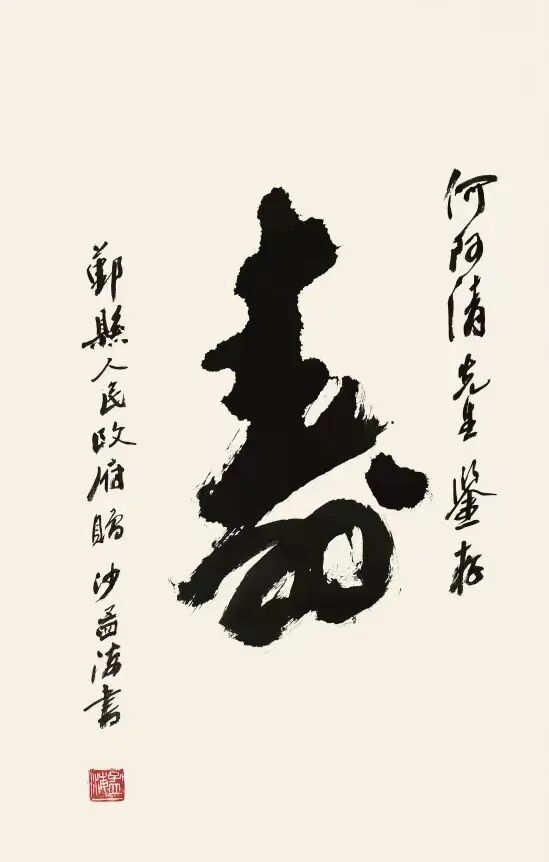 何阿清先生鉴存
寿
鄞縣人民政府贈 沙孟海書
孟海